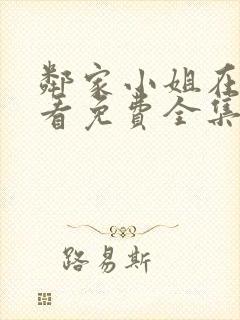 鄰家小姐在
看免費全集
路易斯